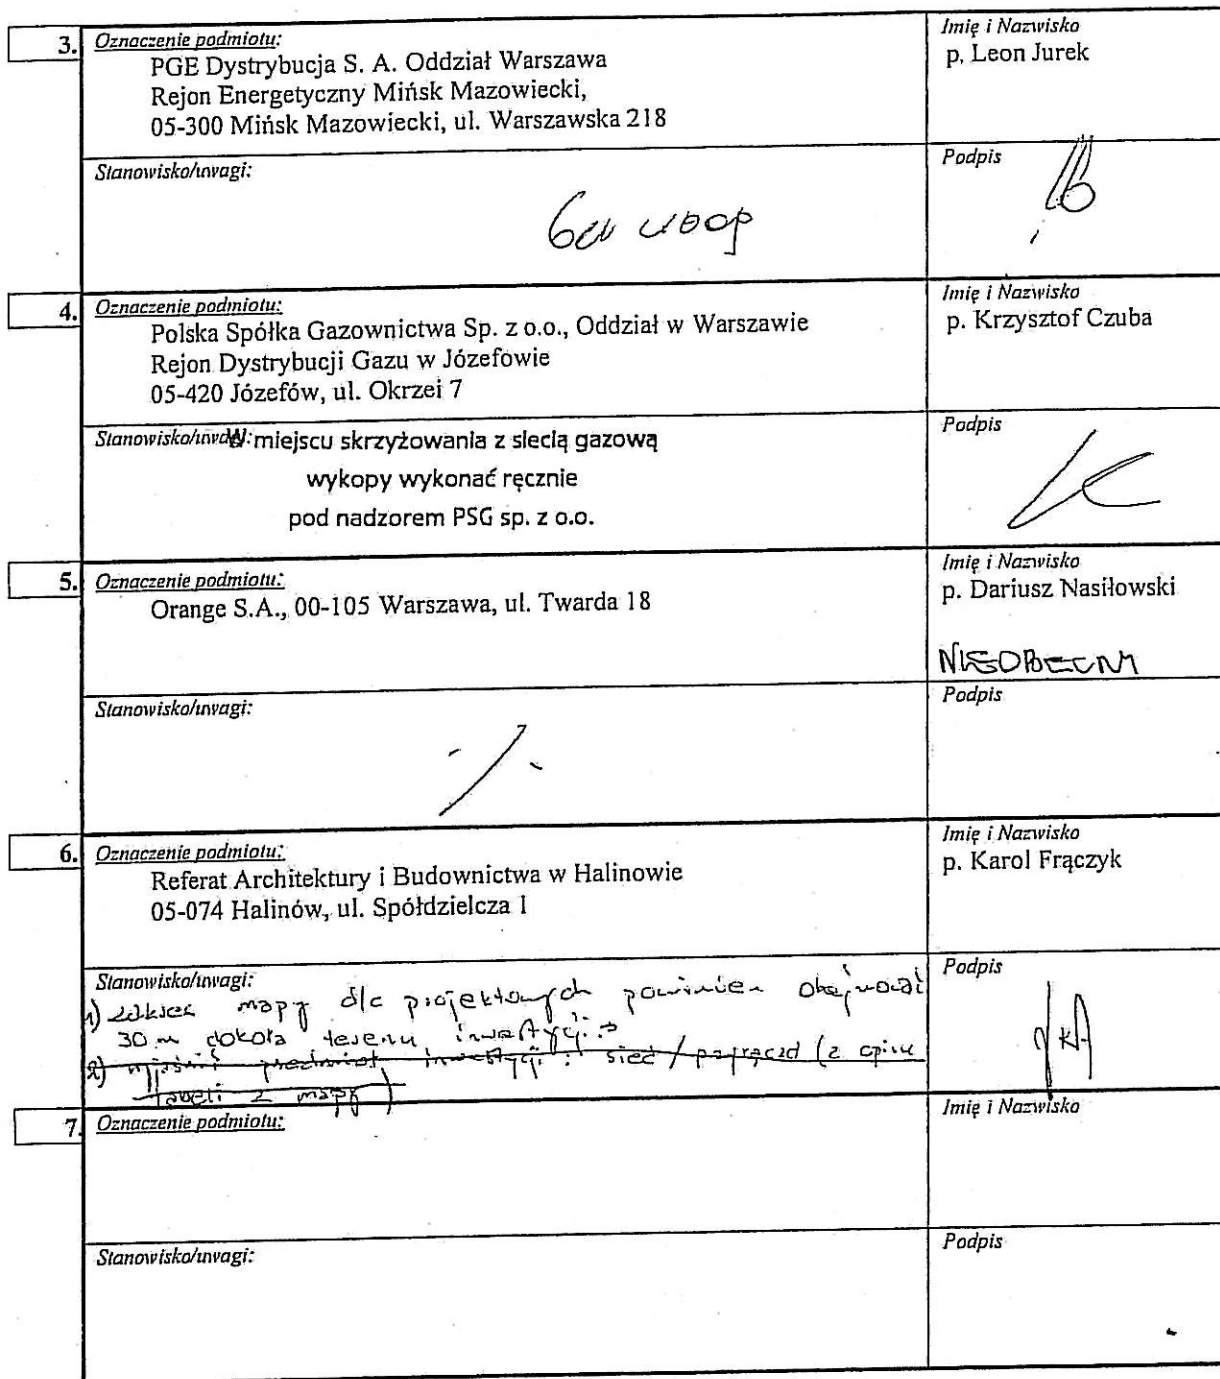 3.
Oznaczenie podmiotu:
PGE Dystrybucja S. A. Oddział Warszawa
Rejon Energetyczny Mińsk Mazowiecki,
05-300 Mińsk Mazowiecki, ul. Warszawska 218
Imię i Nazwisko
p. Leon Jurek
Stanowisko/uwagi:
bez uwag
Podpis
4.
Oznaczenie podmiotu:
Polska Spółka Gazownictwa Sp. z o.o., Oddział w Warszawie
Rejon Dystrybucji Gazu w Józefowie
05-420 Józefów, ul. Okrzei 7
Imię i Nazwisko
p. Krzysztof Czuba
Stanowisko/uwagi:
W miejscu skrzyżowania z siecią gazową
wykopy wykonać ręcznie
pod nadzorem PSG sp. z o.o.
Podpis
5.
Oznaczenie podmiotu:
Orange S.A., 00-105 Warszawa, ul. Twarda 18
Imię i Nazwisko
p. Dariusz Nasiłowski
NIEOBECNY
Stanowisko/uwagi:
Podpis
6.
Oznaczenie podmiotu:
Referat Architektury i Budownictwa w Halinowie
05-074 Halinów, ul. Spółdzielcza 1
Imię i Nazwisko
p. Karol Frączyk
Stanowisko/uwagi:
1) zakres mapy dlc projektowych powinien obejmować
30 m dokoła terenu inwestycji
2) wyjaśnić przedmiot inwestycji: sieć / (z opisu
tabeli z mapy)
Podpis
7.
Oznaczenie podmiotu:
Imię i Nazwisko
Stanowisko/uwagi:
Podpis